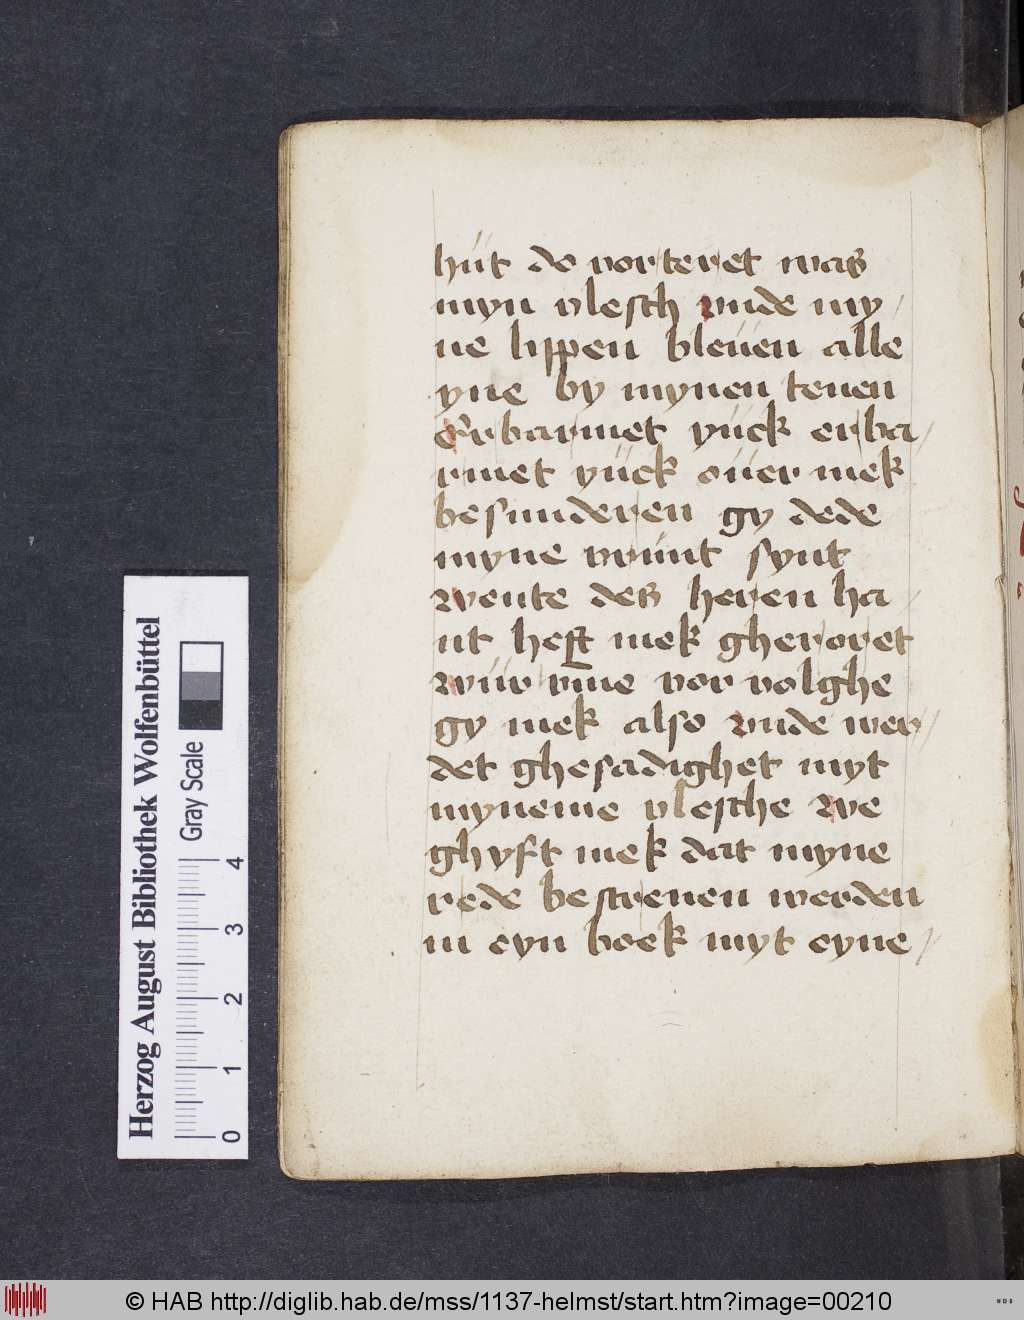 hüt de vorteret was
myn vlesch vnde my/
ne lippen bleüen alle
yne by mynen tenen
Erbarmet yück erba/
rmet yück oüer mek
besunderen gy dede
myne vrünt synt
wente des heren ha/
nt heft mek gheroret
wür vme vor volghe
gy mek also vnde wer//
det ghesadighet myt
myneme vlesche we
ghyft mek dat myne
rede bescreuen werden
in eyn boek myt eyne//
Herzog August Bibliothek Wolfenbüttel
Gray Scale
0 1 2 3 4
© HAB http://diglib.hab.de/mss/1137-helmst/start.htm?image=00210